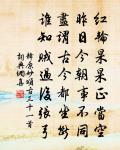 紅輪杲杲正當空
昨日今朝事不同
盡謂古今都坐斷
誰知賊過後張弓
釋原妙頌古三十一首
詞典網書